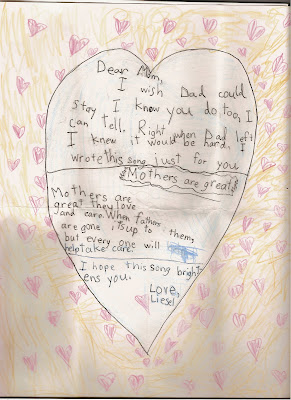 Dear Mom,
I wish Dad could
stay I know you do too, I
can tell. Right when Dad left
I knew it would be hard. I
wrote this song just for you
Mothers are great
Mothers are
great they love
and care. When fathers
are gone its up to them,
but every one will
help take care.
I hope this song bright
ens you.
Love,
Liesel